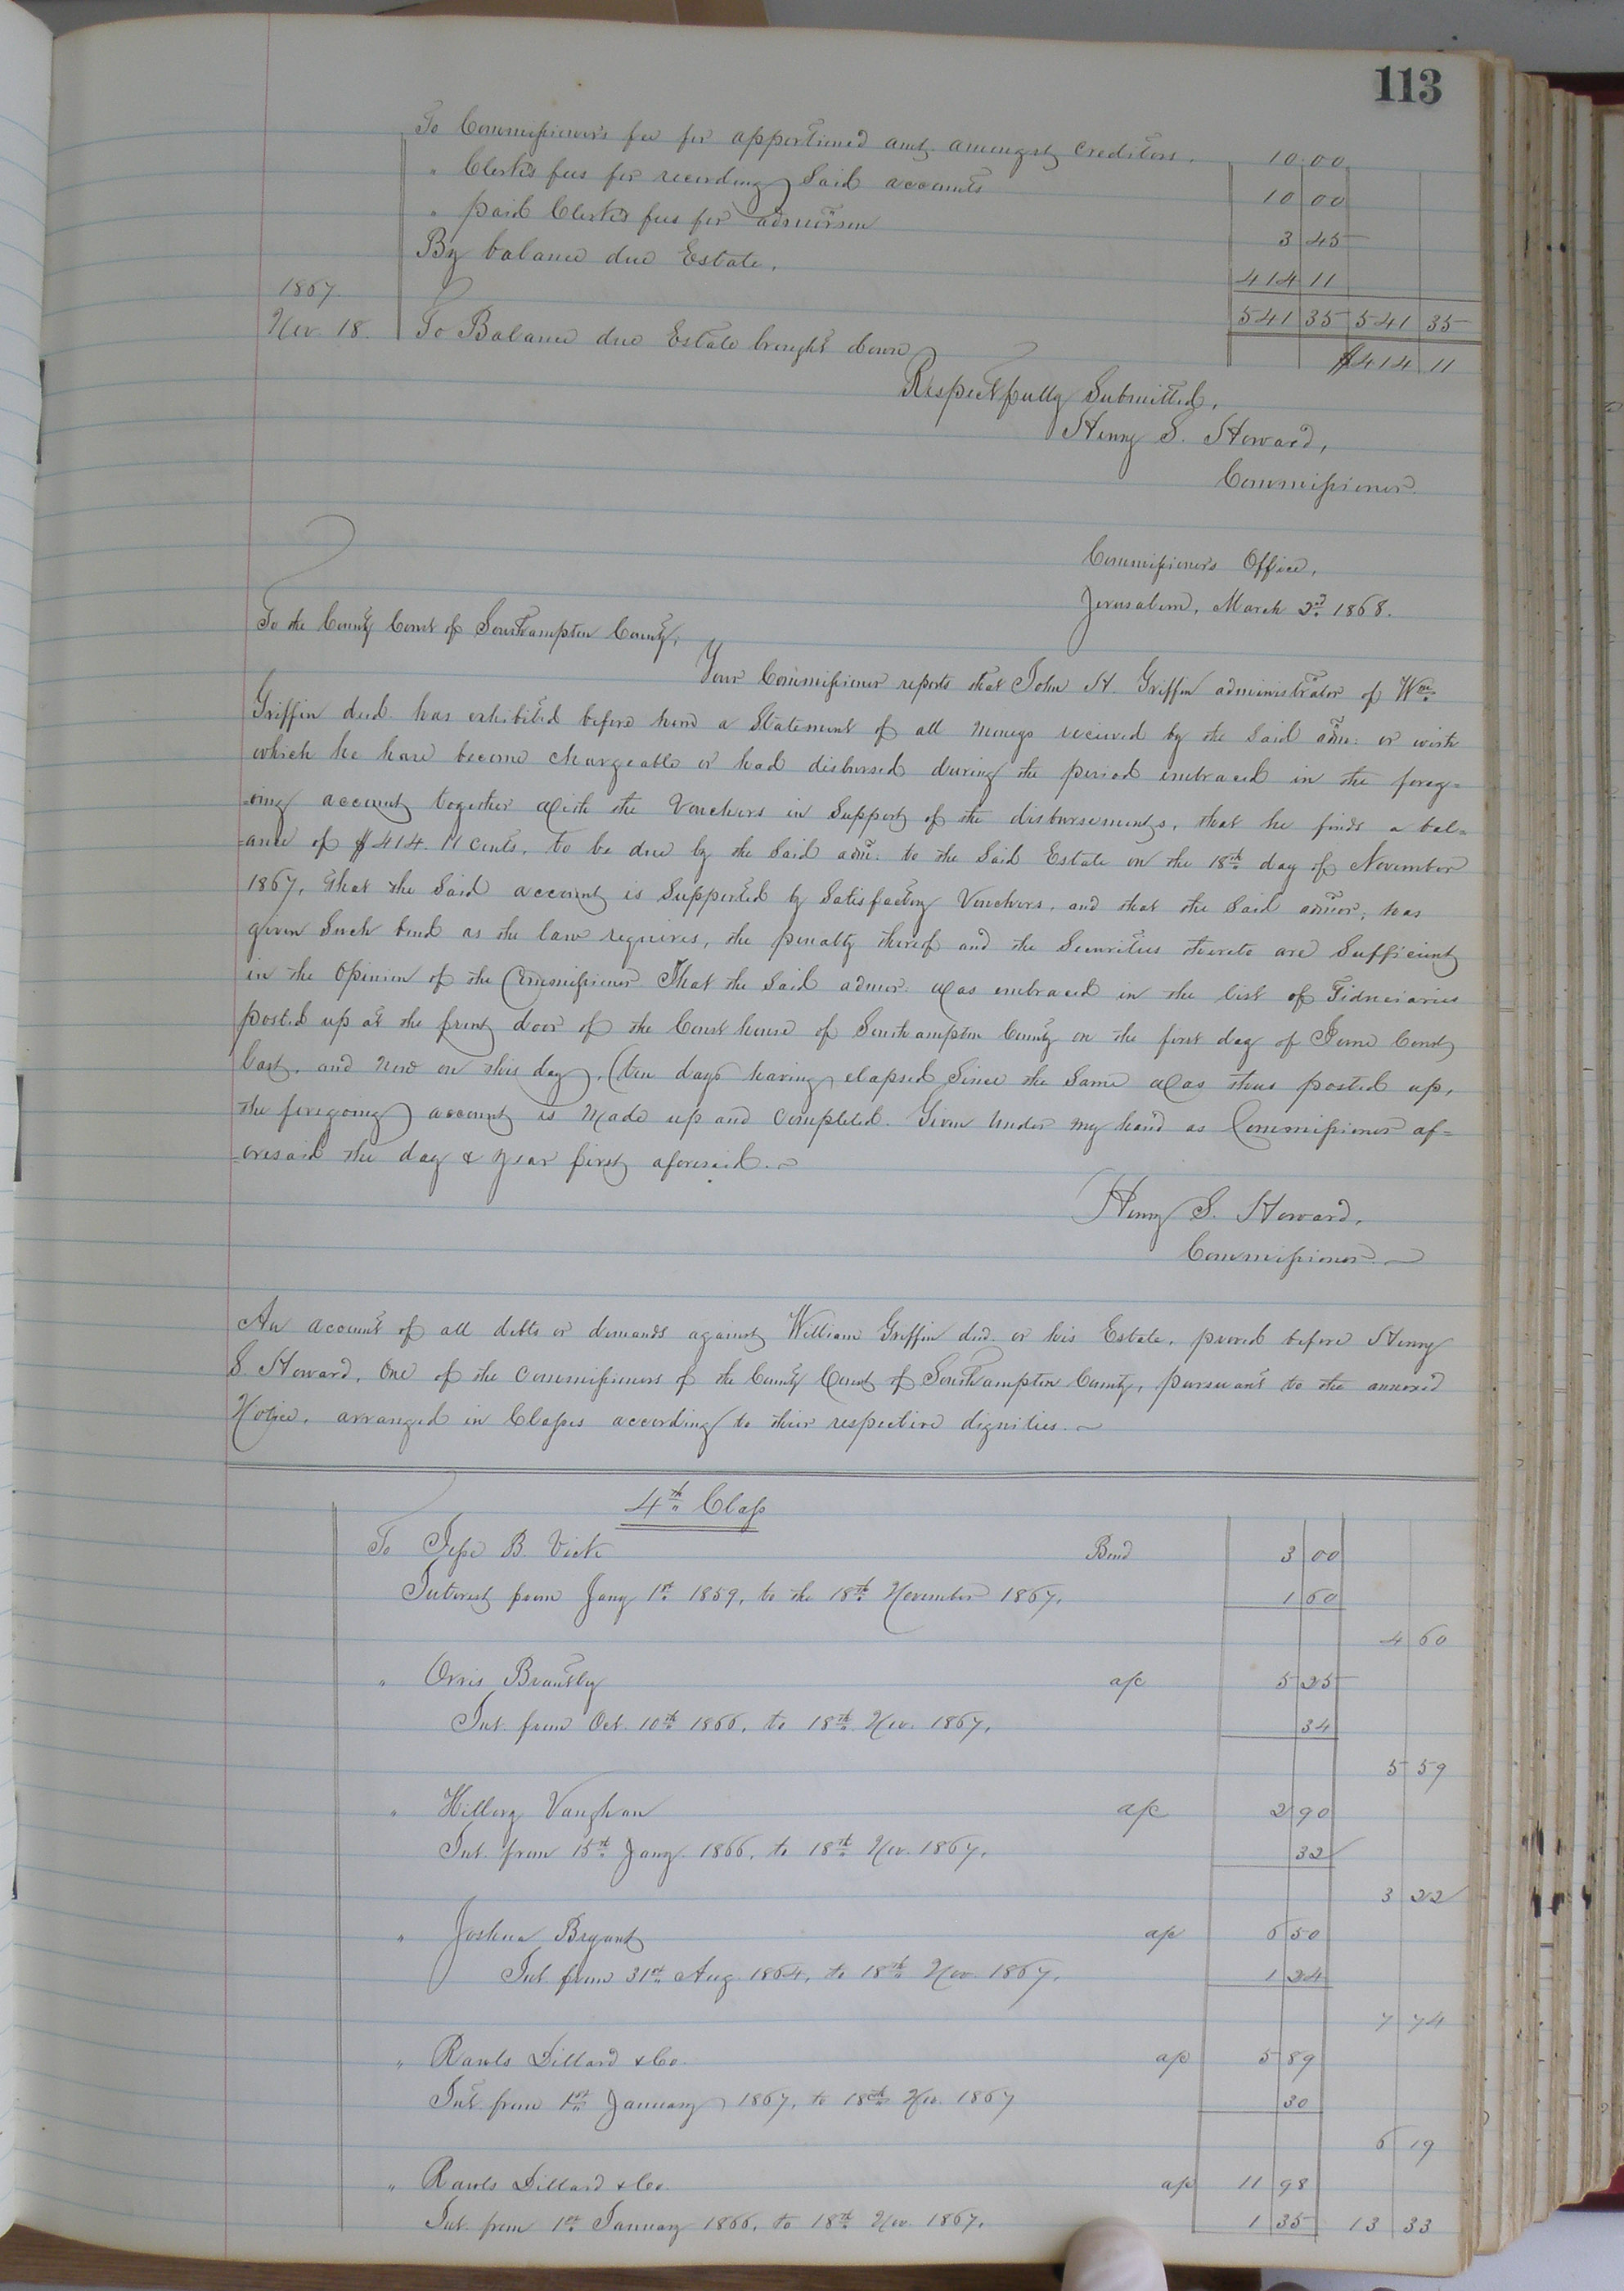 113
To Commissioner's fee for apportioned amt. amongst creditors. 10 00
" Clerk's fees for recording said accounts 10 00
" paid Clerk's fees for 3 45
By balance due Estate. 414 11
1867. 541 35 541 35
Nov. 18. To Balance due Estate brought down $414 11
Respectfully Submitted,
Henry S. Howard,
Commissioner.
Commissioner's Office,
Jerusalem, March 2nd 1868.
To the County Court of Southampton County;
Your Commissioner reports that John H. Griffin administrator of Wm.
Griffin decd. has exhibited before him a Statement of all moneys received by the said adm: or with
which he have become chargeable or had disbursed during the period embraced in the foreg=
=oing account together with the Vouchers in Support of the disbursements, that he finds a bal=
=ance of $414. 11 cents, to be due by the said adm: to the said Estate on the 18th day of November
1867, that the said account is supported by satisfactory Vouchers, and that the said admor; has
given such bond as the law requires, the penalty thereof and the securities thereto are sufficient
in the Opinion of the Commissioner That the said admor. was embraced in the list of Fiduciaries
posted up at the front door of the Court house of Southampton County on the first day of June Court
last, and now on this day, (ten days having elapsed since the same was thus posted up,
the foregoing account is made up and completed. Given under my hand as Commissioner af=
=oresaid the day & year first aforesaid.
Henry S. Howard,
Commissioner.
An account of all debts or demands against William Griffin decd. or his Estate, proved before Henry
S. Howard, One of the commissioners of the County Court of Southampton County, pursuant to the annexed
Notice, arranged in Classes according to their respective dignities.
4th Class
To Jesse B. Vick Bond 3 00
Interest from Jany 1st 1859, to the 18th November 1867, 1 60
4 60
" Orris Brantley a/c 5 25
Int. from Oct. 10th 1866, to 18th Nov. 1867, 34
5 59
" Hillery Vaughan a/c 2 90
Int. from 15th Jany. 1866, to 18th Nov. 1867, 32
3 22
" Joshua Bryant a/c 6 50
Int. from 31st Aug. 1864, to 18th Nov. 1867, 1 24
7 74
" Rawls Dillard & Co. a/c 5 89
Int. from 1st January 1867, to 18th Nov. 1867 30
6 19
" Rawls Dillard & Co. a/c 11 98
Int. from 1st January 1866, to 18th Nov. 1867, 1 35 13 33